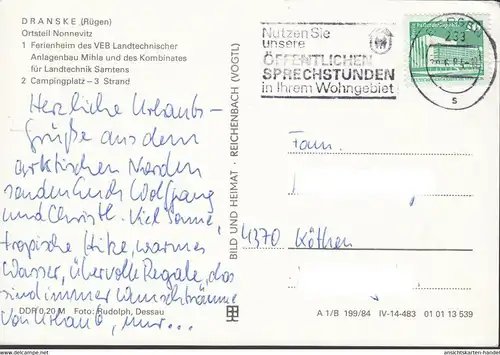 DRANSKE (Rügen)
Ortsteil Nonnevitz
1 Ferienheim des VEB Landtechnischer
Anlagenbau Mihla und des Kombinates
für Landtechnik Samtens
2 Campingplatz – 3 Strand
Herzliche Urlaubs-
grüße aus dem
arktischen Norden
senden Euch Wolfgang
und Christl. Viel Sonne,
tropische Hitze, warmes
Wasser, übervolle Regale, das
sind immer Wunschträume
von Urlaub, nur...
DDR 0,20 M Foto: Rudolph, Dessau
BILD UND HEIMAT · REICHENBACH (VOGTL)
Nutzen Sie
unsere
ÖFFENTLICHEN
SPRECHSTUNDEN
in Ihrem Wohngebiet
233
s
Fam.
4370 Köthen
A 1/B 199/84 IV-14-483 01 01 13 539
www.ansichtskarten-haendler.de